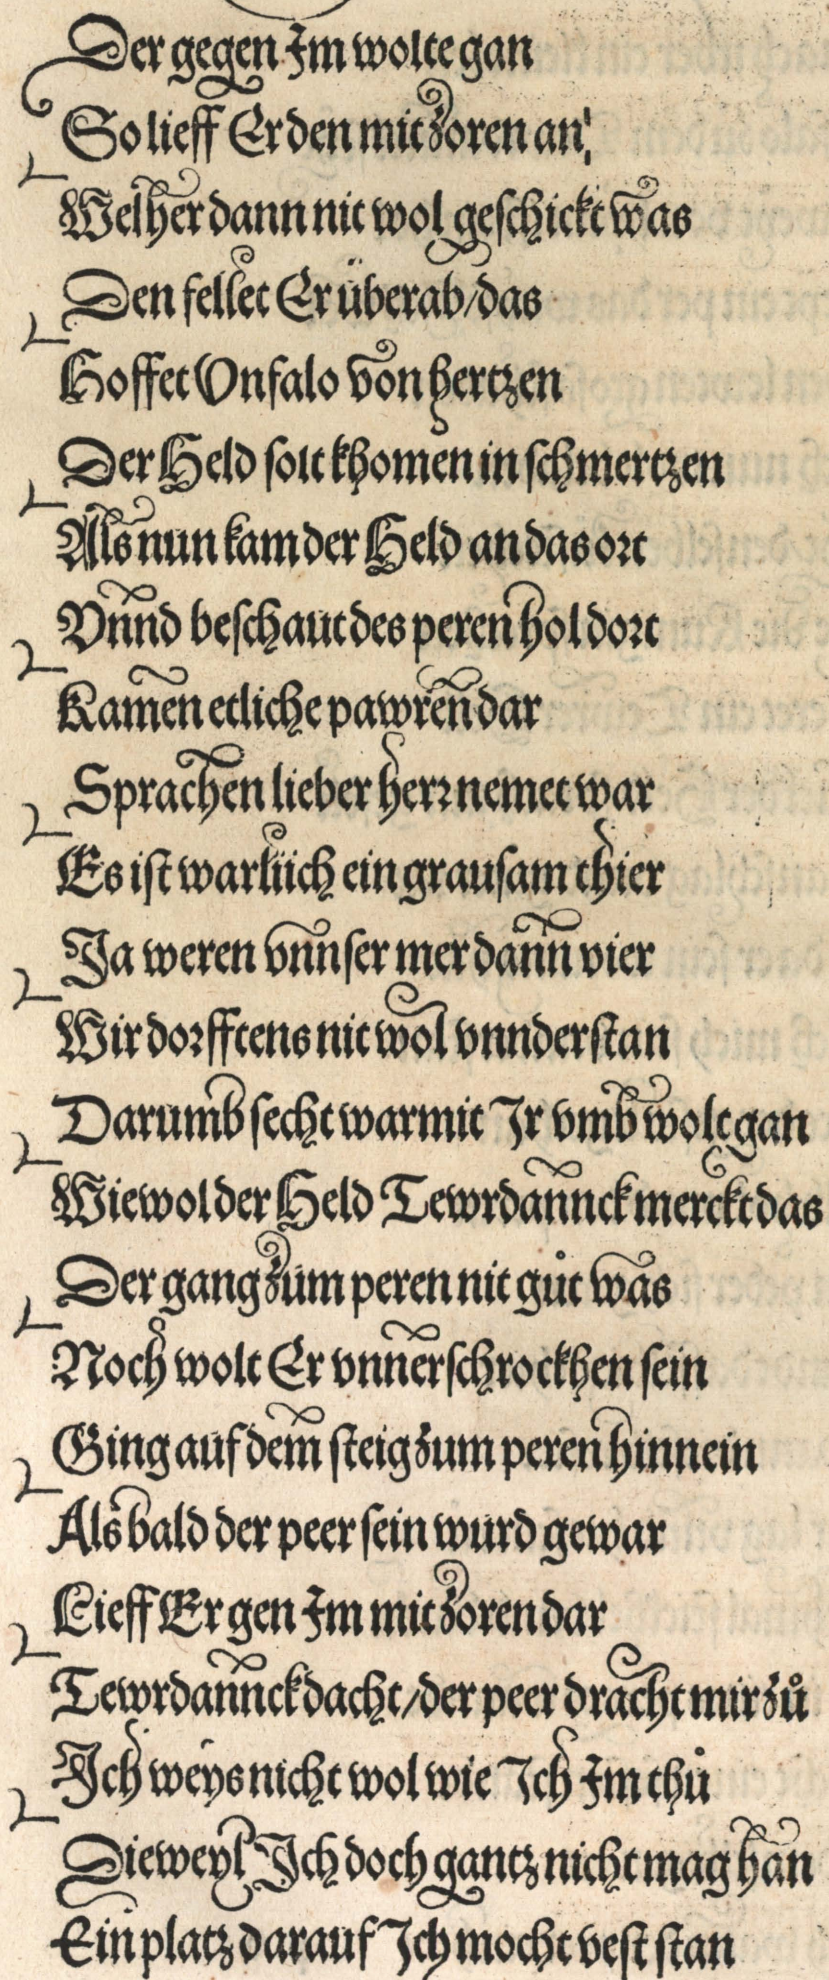 Der gegen Im wolte gan
So lieff Er den mit zoren an,
Welher dann nit wol geschickt was
Den fellet Er überab/das
Hoffet Vnfalo von hertzen
Der Held solt khomen in schmertzen
Als nun kam der Held an das ort
Vnnd beschaut des peren hol dort
Kamen etliche pawren dar
Sprachen lieber herr nemet war
Es ist warlich ein grausam thier
Ja weren vnnser mer dann vier
Wir dorfftens nit wol vnnderstan
Darumb secht warmit Ir vmb wolt gan
Wiewol der Held Tewrdannck merckt das
Der gang zum peren nit gůt was
Noch wolt Er vnnerschrockhen sein
Ging auf dem steig zum peren hinnein
Als bald der peer sein wurd gewar
Lieff Er gen Im mit zoren dar
Tewrdannck dacht/der peer dracht mir zů
Ich weys nicht wol wie Ich Im thů
Dieweyl Ich doch gantz nicht mag han
Ein platz darauf Ich mocht vest stan